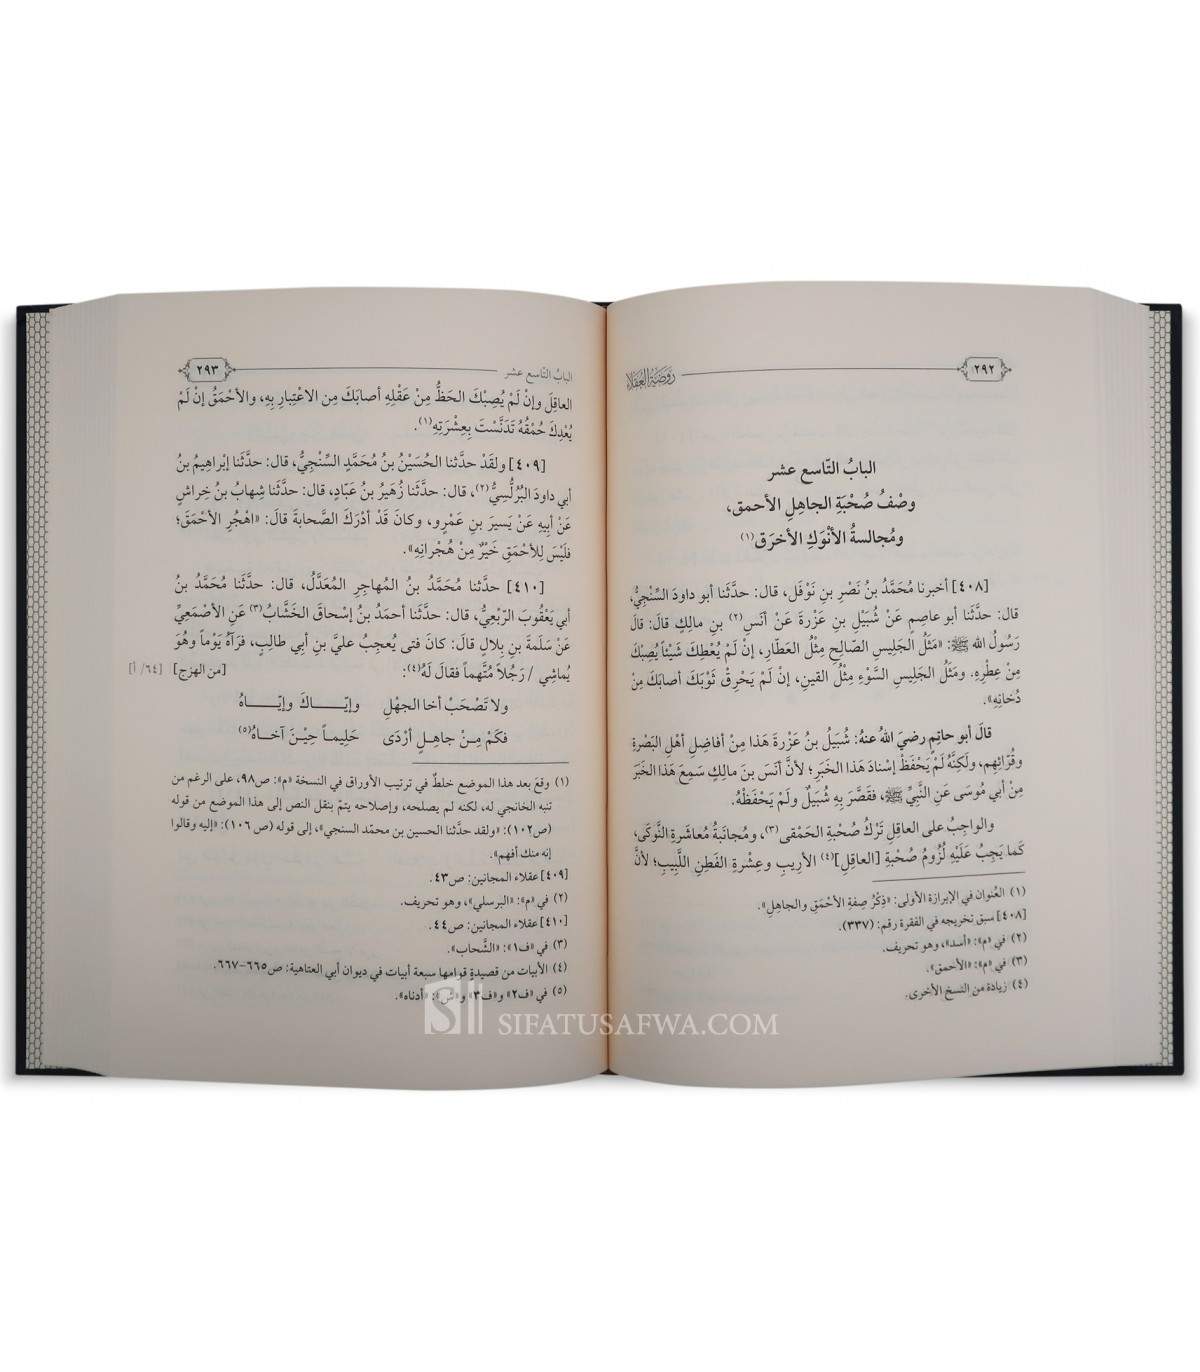 ٢٩٢
روضة العقلاء
البابُ التّاسع عشر
وصْفُ صُحْبَةِ الجاهِلِ الأحمق،
ومُجالسةُ الأنْوَكِ الأخرَق(١)
[٤٠٨] أخبرنا مُحَمَّدُ بنُ نَصْرِ بنِ نَوْفَل، قال: حدَّثَنا أبو داودَ السِّنْجِيُّ،
قال: حدَّثَنا أبو عاصِمٍ عَنْ شُبَيْلِ بنِ عَزْرةَ عَنْ أنَسِ(٢) بنِ مالِكٍ قالَ: قالَ
رَسولُ الله ﷺ: «مَثَلُ الجَليسِ الصّالِحِ مِثْلُ العَطّارِ، إنْ لَمْ يُعْطِكَ شَيْئاً يُصِبْكَ
مِنْ عِطْرِهِ. ومَثَلُ الجَليسِ السَّوْءِ مِثْلُ القينِ، إنْ لَمْ يَحْرِقْ ثَوْبَكَ أصابَكَ مِنْ
دُخانِهِ».
قالَ أبو حاتِمٍ رضيَ اللهُ عنهُ: شُبَيْلُ بنُ عَزْرةَ هَذا مِنْ أفاضِلِ أهْلِ البَصْرةِ
وقُرّائِهِم، ولَكِنَّهُ لَمْ يَحْفَظْ إسْنادَ هَذا الخَبَرِ؛ لأنَّ أنَسَ بنَ مالِكٍ سَمِعَ هَذا الخَبَرَ
مِنْ أبي مُوسَى عَنِ النَّبِيِّ ﷺ، فقَصَّرَ بِهِ شُبَيْلٌ ولَمْ يَحْفَظْهُ.
والواجِبُ على العاقِلِ تَرْكُ صُحْبَةِ الحَمْقى(٣)، ومُجانَبةُ مُعاشَرةِ النَّوْكَى،
كَما يَجِبُ عَلَيْهِ لُزُومُ صُحْبَةِ [العاقِلِ](٤) الأريبِ وعِشْرةِ الفَطِنِ اللَّبِيبِ؛ لأنَّ
(١) العُنوان في الإبرازة الأولى: «ذِكْرُ صِفةِ الأحْمَقِ والجاهِلِ».
[٤٠٨] سبق تخريجه في الفقرة رقم: (٣٣٧).
(٢) في «م»: «أسد»، وهو تحريف.
(٣) في «م»: «الأحمق».
(٤) زيادة من النسخ الأخرى.
البابُ التّاسع عشر
٢٩٣
العاقِلَ وإنْ لَمْ يُصِبْكَ الحَظُّ مِنْ عَقْلِهِ أصابَكَ مِنَ الاعْتِبارِ بِهِ، والأحْمَقُ إنْ لَمْ
يُعْدِكَ حُمْقُهُ تَدَنَّسْتَ بِعِشْرَتِهِ(١).
[٤٠٩] ولقَدْ حدَّثَنا الحُسَيْنُ بنُ مُحَمَّدٍ السِّنْجِيُّ، قال: حدَّثَنا إبْراهِيمُ بنُ
أبي داودَ البُرُلُّسِيُّ(٢)، قال: حدَّثَنا زُهَيْرُ بنُ عَبّادٍ، قال: حدَّثَنا شِهابُ بنُ خِراشٍ
عَنْ أبيهِ عَنْ يَسيرَ بنِ عَمْرٍو، وكانَ قَدْ أدْرَكَ الصَّحابةَ قالَ: «اهْجُرِ الأحْمَقَ؛
فلَيْسَ لِلأحْمَقِ خَيْرٌ مِنْ هُجْرانِهِ».
[٤١٠] حدَّثَنا مُحَمَّدُ بنُ المُهاجِرِ المُعَدَّلُ، قال: حدَّثَنا مُحَمَّدُ بنُ
أبي يَعْقُوبَ الرَّبَعِيُّ، قال: حدَّثَنا أحمَدُ بنُ إسْحاقَ الخَشَّابُ(٣) عَنِ الأصْمَعِيِّ
عَنْ سَلَمةَ بنِ بِلالٍ قالَ: كانَ فتى يُعجِبُ عليَّ بنِ أبي طالِبٍ، فرَآهُ يَوْماً وهُوَ
يُماشِي / رَجُلاً مُتَّهماً فقالَ لَهُ(٤): [من الهزج] [٦٤/ أ]
ولا تَصْحَبْ أخا الجهْلِ وإيّـــاكَ وإيّـــاهُ
فكَمْ مِـنْ جاهِـلٍ أرْدَى حَلِيماً حِيْـنَ آخـاهُ(٥)
(١) وقعَ بعد هذا الموضع خلطٌ في ترتيب الأوراق في النسخة «م»: ص٩٨، على الرغم من
تنبه الخانجي له، لكنه لم يصلحه، وإصلاحه يتمّ بنقل النص إلى هذا الموضع من قوله
(ص١٠٢): «ولقد حدَّثنا الحسين بن محمّد السنجي»، إلى قوله (ص ١٠٦): «إليه وقالوا
إنه منك أفهم».
[٤٠٩] عقلاء المجانين: ص٤٣.
(٢) في «م»: «البرسلي»، وهو تحريف.
[٤١٠] عقلاء المجانين: ص٤٤.
(٣) في «ف١»: «الشَّحاب».
(٤) الأبيات من قصيدةٍ قوامها سبعة أبيات في ديوان أبي العتاهية: ص٦٦٥-٦٦٧.
(٥) في «ف٢» و«ف٣» و«ش»: «أدناه».
SIFATUSAFWA.COM